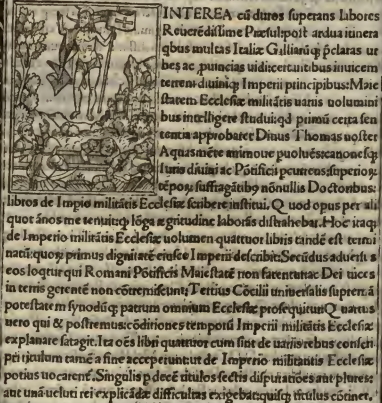 INTEREA cū duros superans labores
Reuerēdissime Præsul: post ardua itinera
qbus multas Italiæ Galliarūq; p̄claras ur
bes ac puincias uidisti: cuntibus inuicem
terreni diuiniq; Imperii principibus: Maie
statem Ecclesiæ militātis uariis uolumini
bus intelligere studui: qd primū certa sen
tentia approbaret Diuus Thomas noster
Aquas mēte mimoue puoluēs: canonesq;
Iuris diuini ac Pōtificii pcurrens: superiorꝝ
tēporꝝ suffragātibꝰ nōnullis Doctoribus:
libros de Impio militātis Ecclesiæ scribere institui. Quod opus per ali
quot ānos me tenuit: q; lōga ægritudine laborās distrahebar. Hoc itaq;
de Imperio militātis Ecclesiæ uolumen quattuor libris tandē est termi
natū: quorꝝ primus dignitatē eiusce Imperii describit: Secūdus aduersus
eos loqtur qui Romani Pōtificis Maiestatē non fatentur: ac Dei uices
in terris gerentē non cōtremiscunt: Tertius Cōcilii uniuersalis supremā
potestatem synodūq; patrum omnium Ecclesiæ prosequitur: Quartus
uero qui & postremus: cōditiones temporū Imperii militātis Ecclesiæ
explanare satagit. Ita oēs libri quattuor cum sint de uariis rebus conscri
pti titulum tamē a fine acceperunt: ut de Imperio militantis Ecclesiæ
potius uocarent. Singulis p decē titulos sectis disputatiōes aut plures:
aut una: ueluti rei explicādæ difficultas exigebat: quisq; titulus cōtinet.